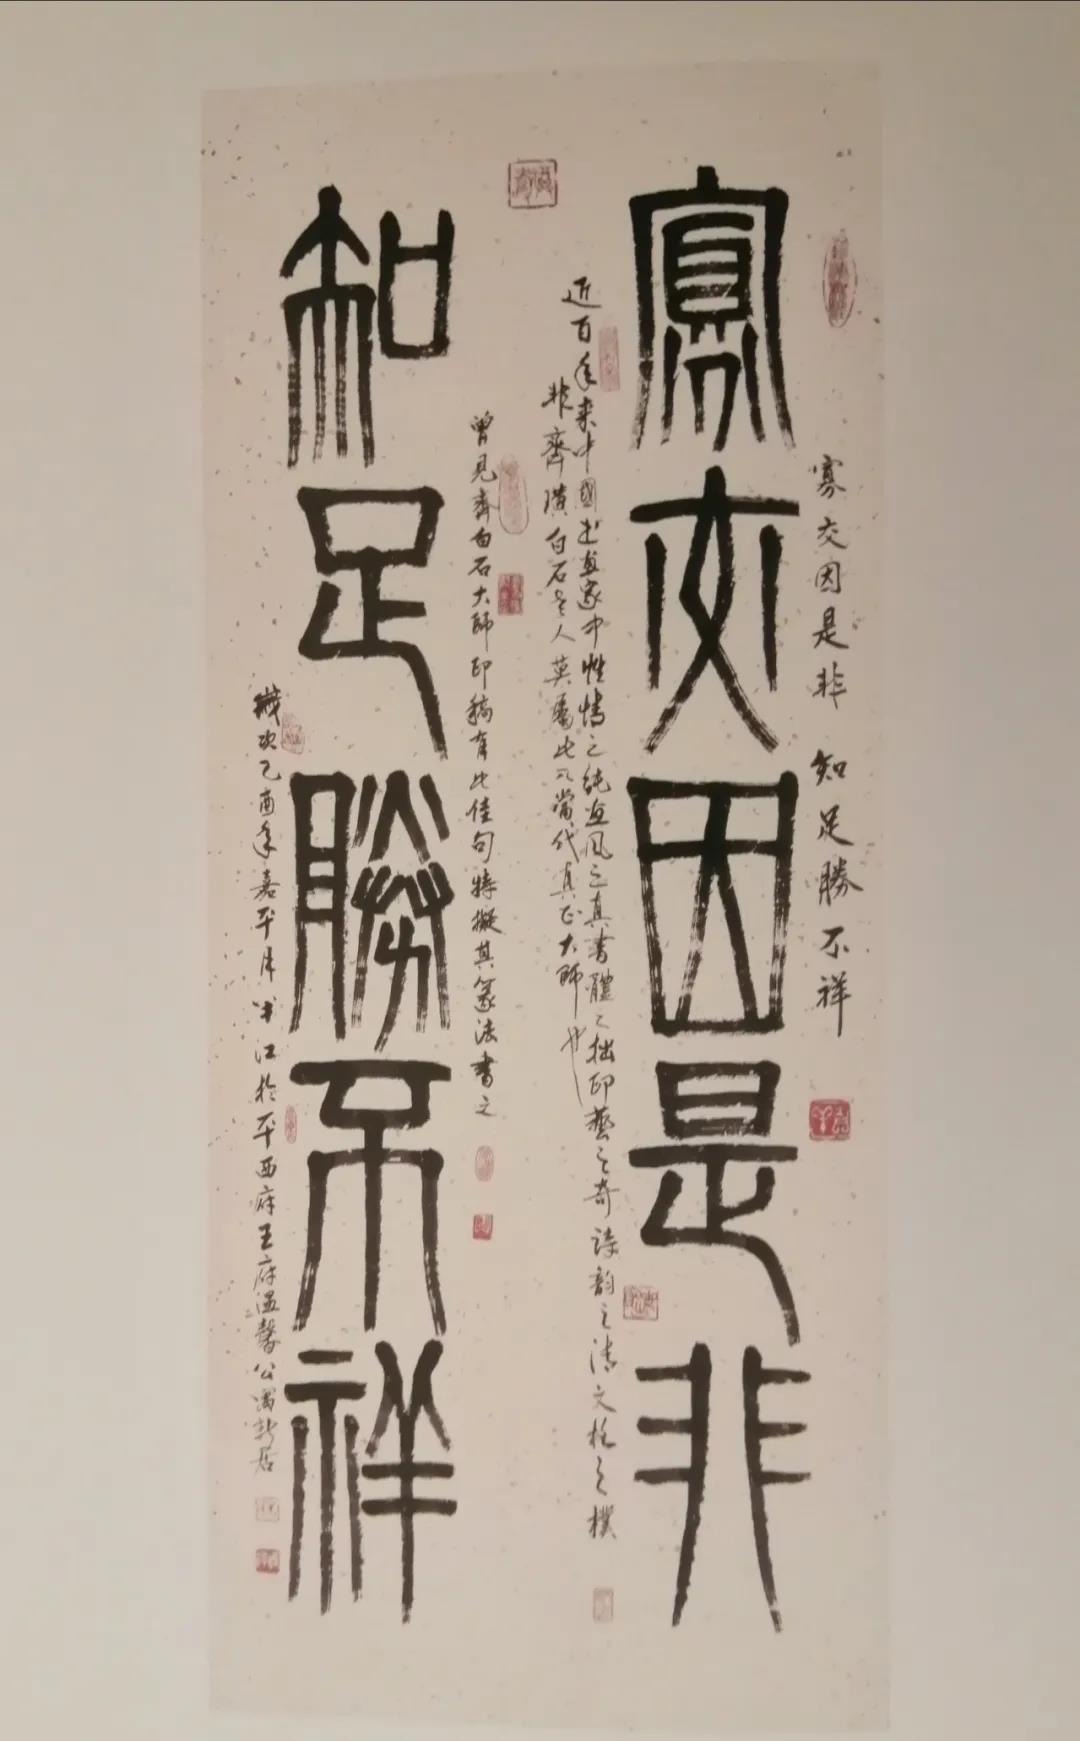 寡交因是非
知足勝不祥
寡交因是非 知足勝不祥
近百年來中國书畫家中性情之純畫風之真書體之拙印藝之奇詩韵之清文格之樸
非齊璜白石老人莫屬此乃當代真正大師也
曾見齊白石大師印稿有此佳句特擬其篆法書之
歲次乙酉年嘉平月半江於平西府王府溫馨公寓新居